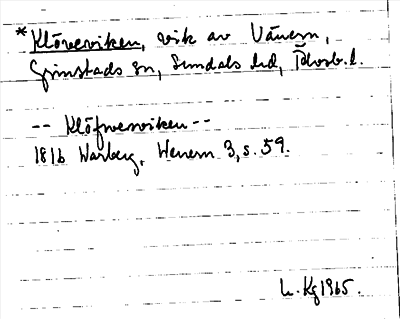 *Klöverviken, vik av Vänern,
Grinstads sn, Sundals hd, Älvsb. l.
-- Klöfwerwiken --
1816 Warberg, Wenern 3, s. 59.
L. Kg 1965.